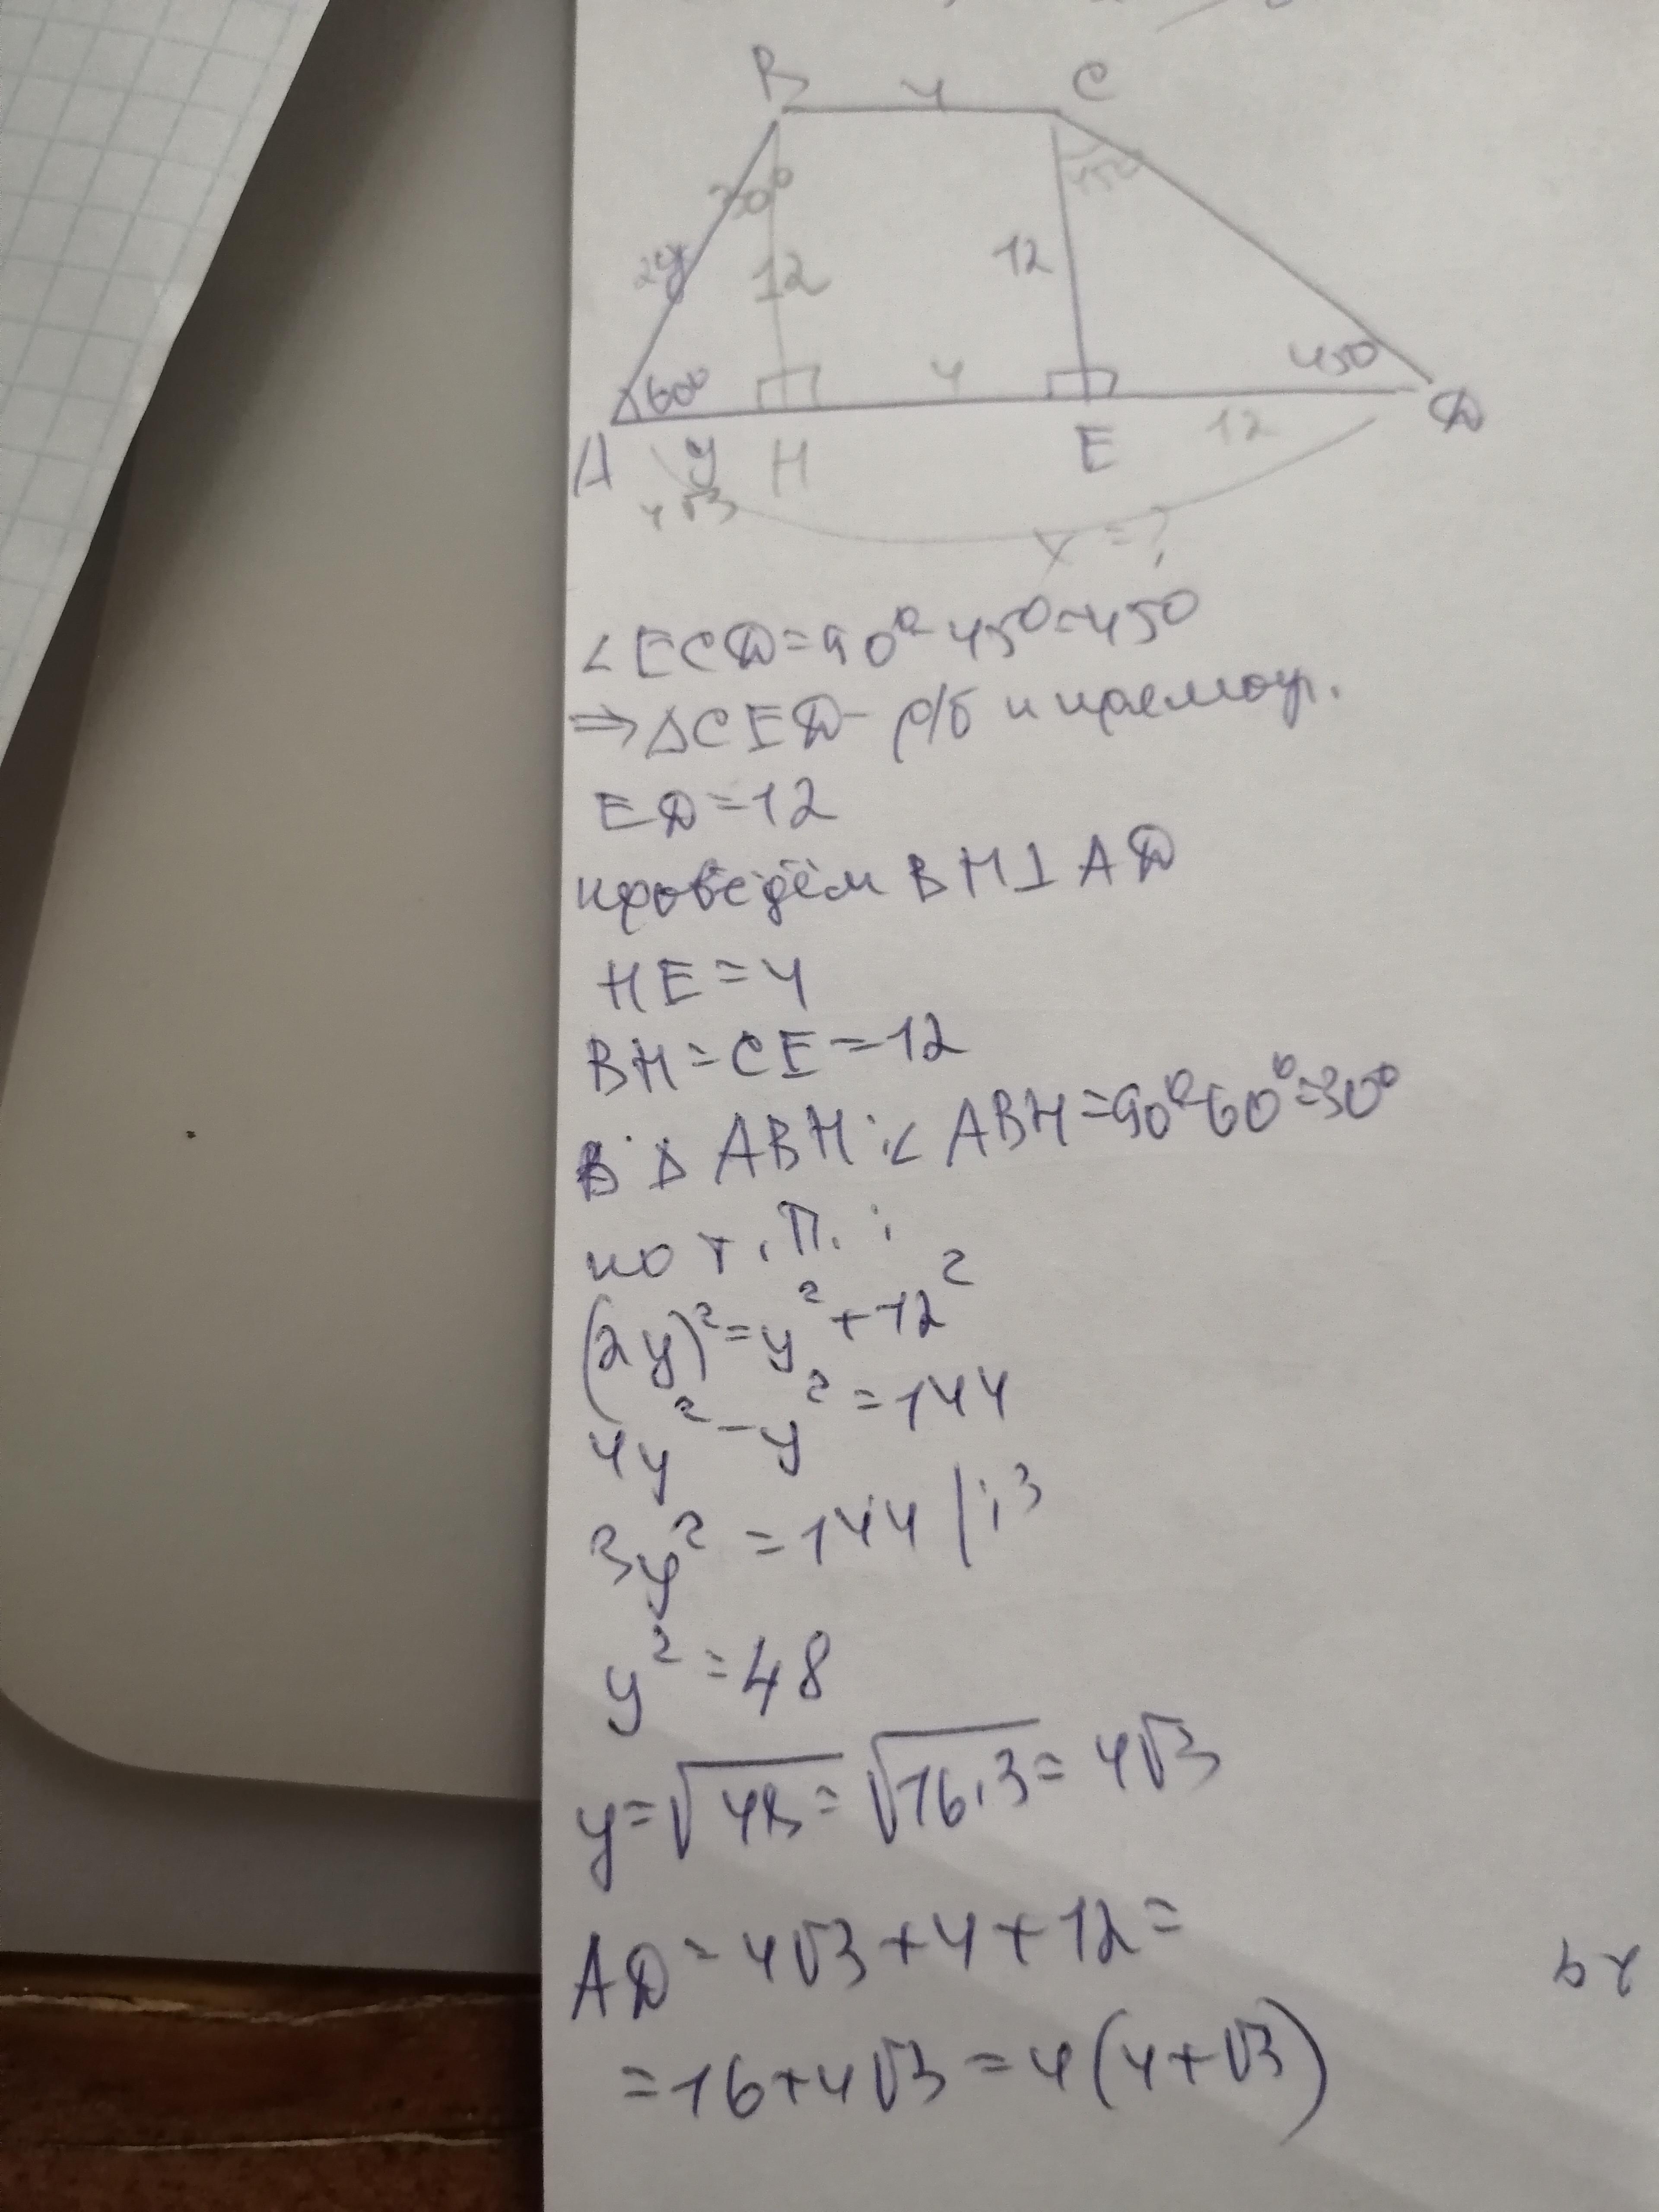 B 4 C
30° 45°
2y 12 12
60° 4 45°
A y H E 12 D
4√3
x = ?
∠ECD=90°-45°=45°
⇒ △CED - р/б и прямоуг.
ED=12
проведём BH⊥AD
HE=4
BH=CE=12
В △ABH: ∠ABH=90°-60°=30°
по т. П.:
(2y)²=y²+12²
4y²-y²=144
3y²=144 | :3
y²=48
y=√48=√16·3=4√3
AD=4√3+4+12=
=16+4√3=4(4+√3)